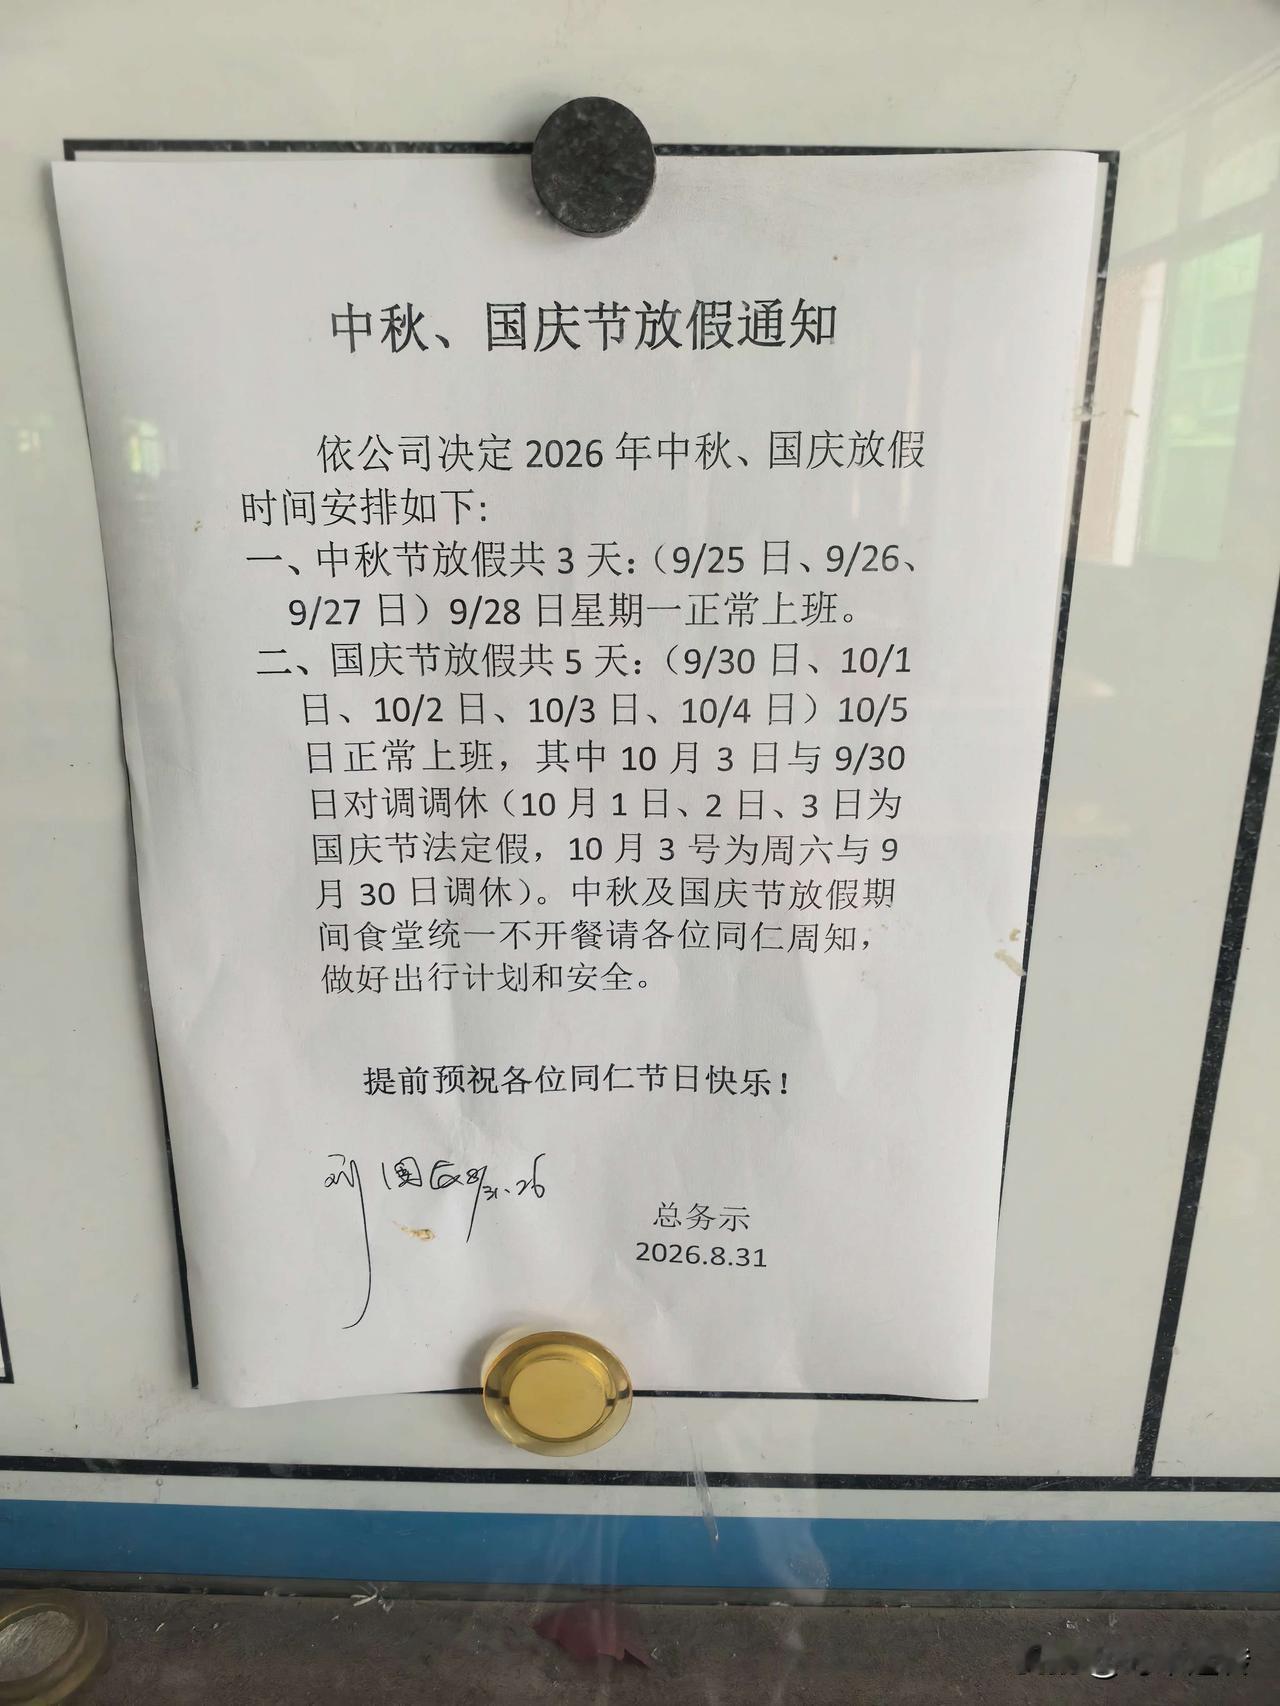 中秋、国庆节放假通知
依公司决定 2026 年中秋、国庆放假
时间安排如下：
一、中秋节放假共 3 天：（9/25 日、9/26、
9/27 日）9/28 日星期一正常上班。
二、国庆节放假共 5 天：（9/30 日、10/1
日、10/2 日、10/3 日、10/4 日）10/5
日正常上班，其中 10 月 3 日与 9/30
日对调调休（10 月 1 日、2 日、3 日为
国庆节法定假，10 月 3 号为周六与 9
月 30 日调休）。中秋及国庆节放假期
间食堂统一不开餐请各位同仁周知，
做好出行计划和安全。
提前预祝各位同仁节日快乐！
8/31.26
总务示
2026.8.31